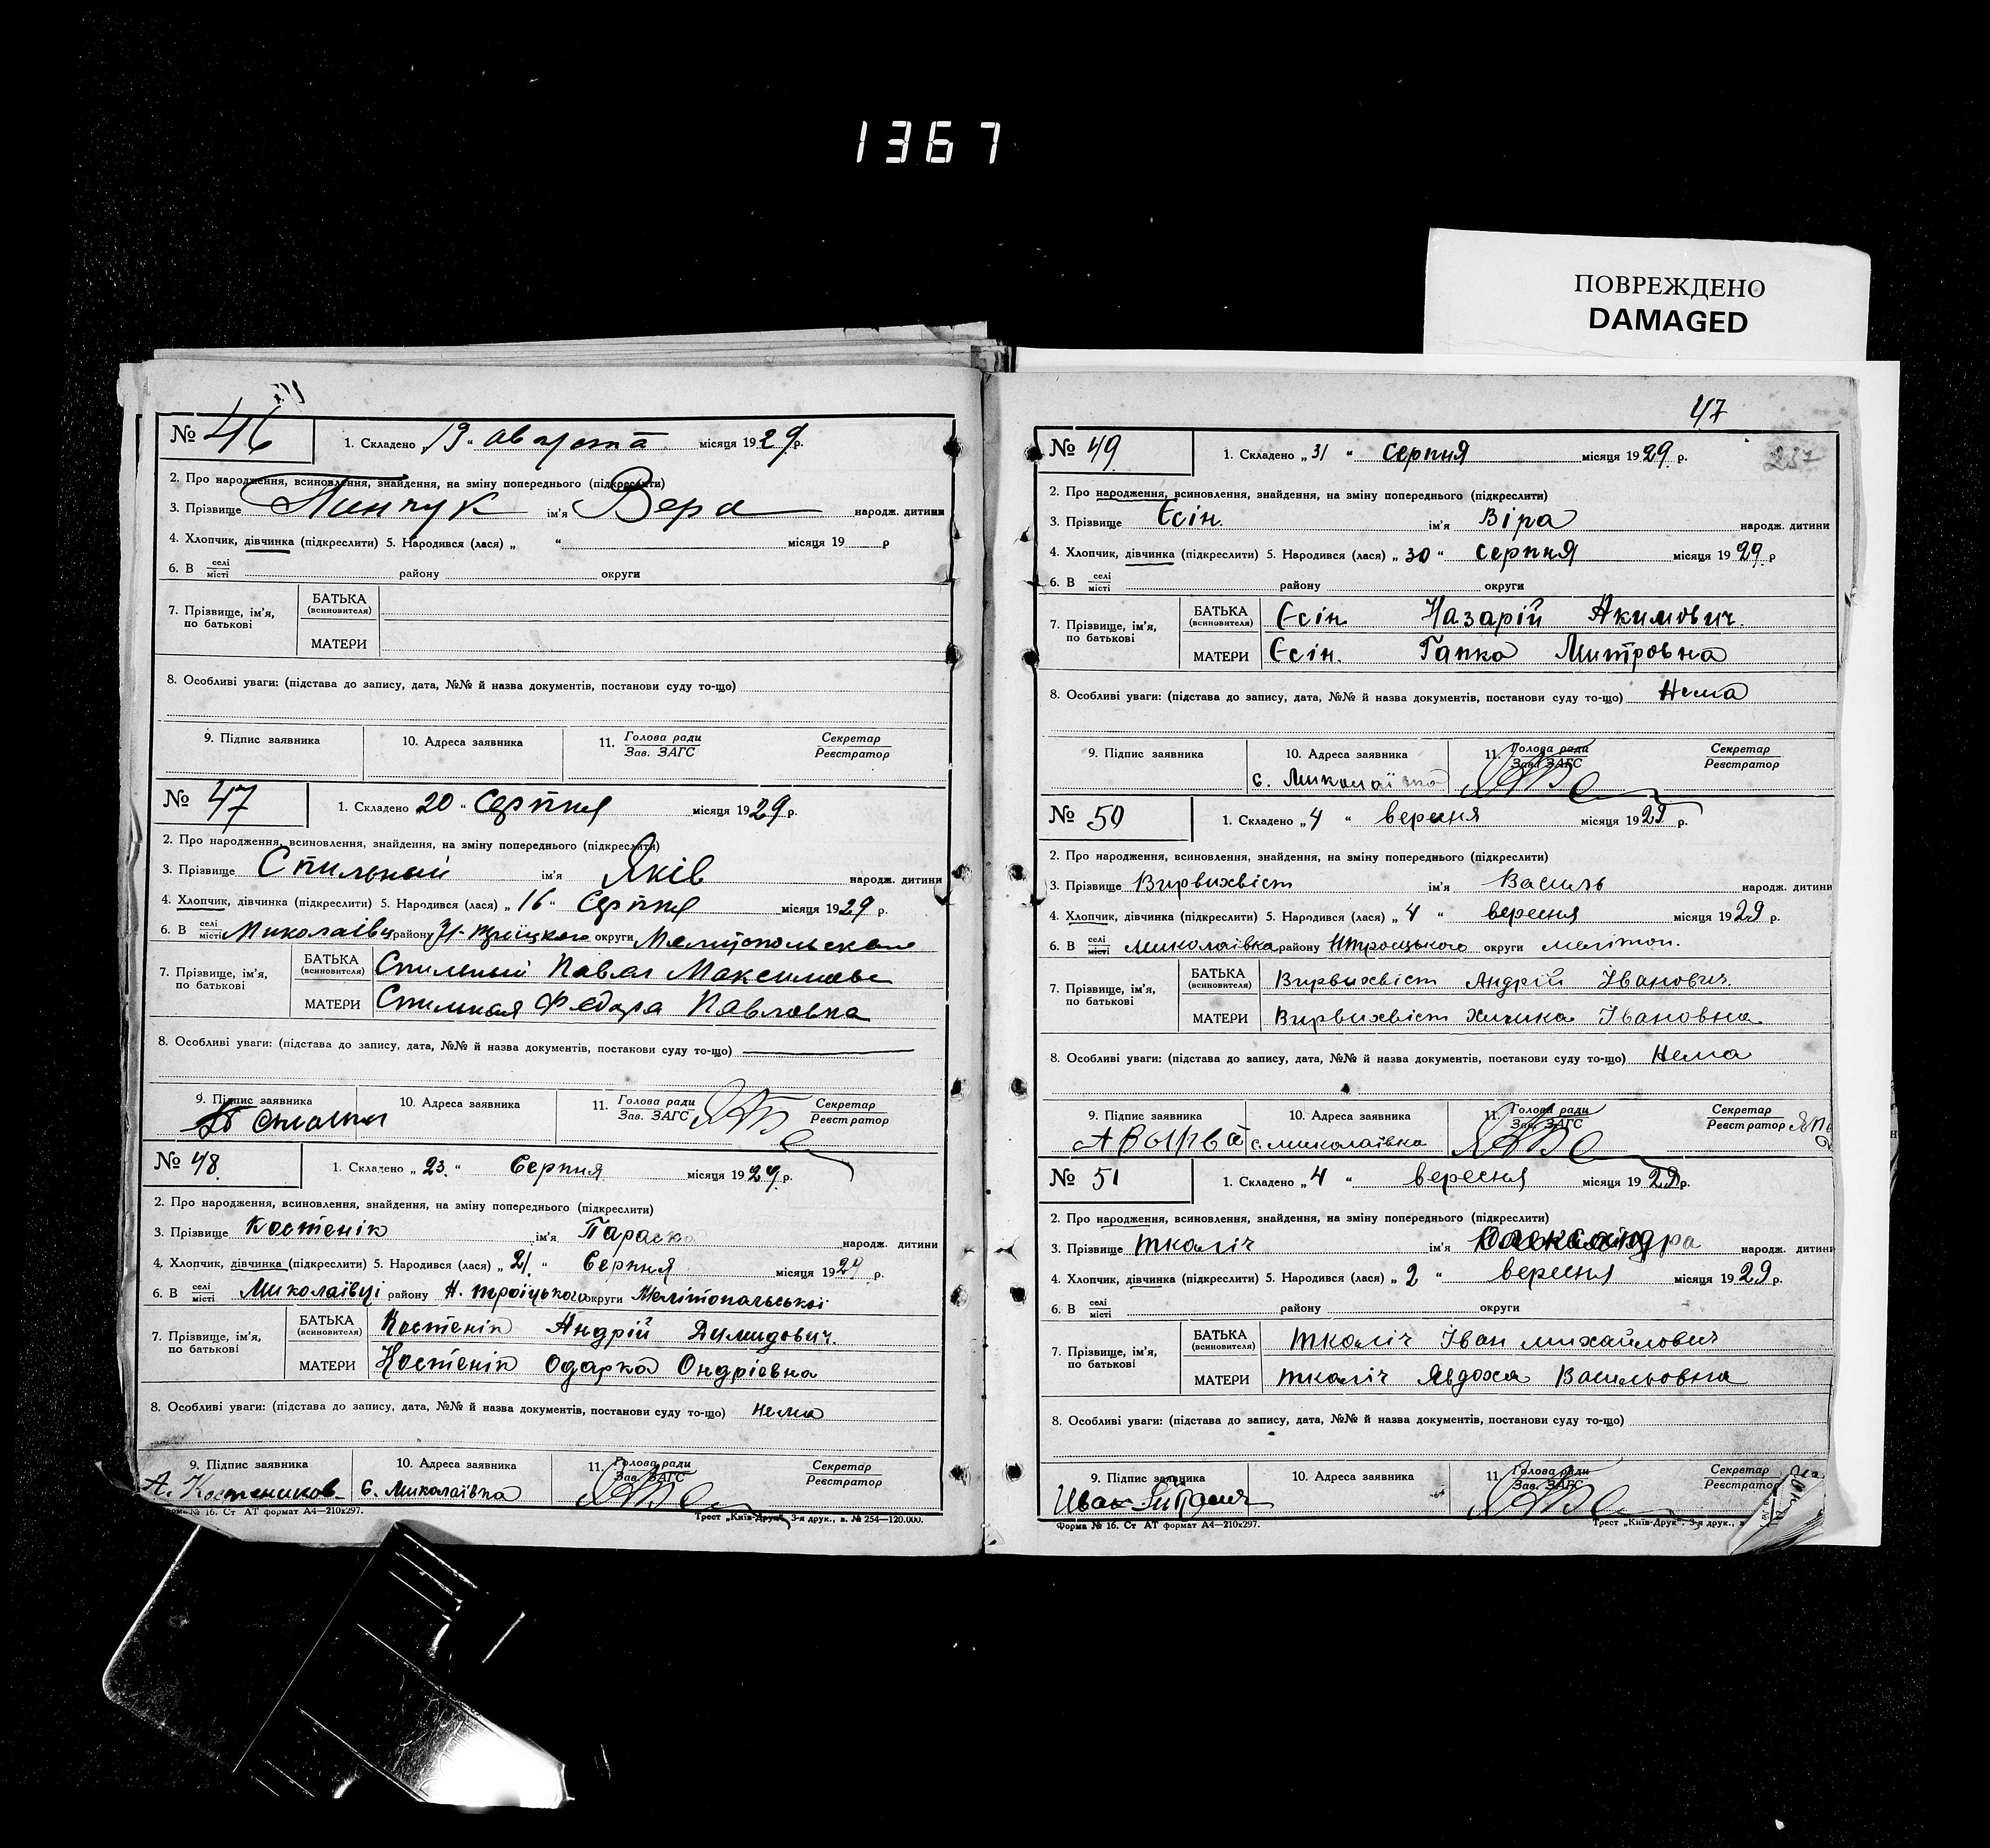 1367
ПОВРЕЖДЕНО
DAMAGED
№ 46 1. Складено „19“ августа місяця 1929 р.
2. Про народження, всиновлення, знайдення, на зміну попереднього (підкреслити)
3. Прізвище Пинчук ім'я Вера народж. дитини
4. Хлопчик, дівчинка (підкреслити) 5. Народився (лася) „ “ місяця 19 р
6. В селі місті району округи
7. Прізвище, ім'я, по батькові
БАТЬКА (всиновителя)
МАТЕРИ
8. Особливі уваги: (підстава до запису, дата, №№ й назва документів, постанови суду то-що)
9. Підпис заявника 10. Адреса заявника 11. Голова ради Зав. ЗАГС Секретар Реєстратор
№ 47 1. Складено „20“ Серпня місяця 1929 р.
2. Про народження, всиновлення, знайдення, на зміну попереднього (підкреслити)
3. Прізвище Стильный ім'я Яків народж. дитини
4. Хлопчик, дівчинка (підкреслити) 5. Народився (лася) „16“ Серпня місяця 1929 р.
6. В селі місті Миколаївц району Н-Троіцкого округи
7. Прізвище, ім'я, по батькові
БАТЬКА (всиновителя) Стильный Павло
МАТЕРИ Стильная Федора Павловна
8. Особливі уваги: (підстава до запису, дата, №№ й назва документів, постанови суду то-що)
9. Підпис заявника 10. Адреса заявника 11. Голова ради Зав. ЗАГС Секретар Реєстратор
№ 48. 1. Складено „23.“ Серпня місяця 1929 р.
2. Про народження, всиновлення, знайдення, на зміну попереднього (підкреслити)
3. Прізвище Костенік ім'я Параска народж. дитини
4. Хлопчик, дівчинка (підкреслити) 5. Народився (лася) „21.“ Серпня місяця 1929 р.
6. В селі місті Миколаівці району Н. троіцького округи Мелітопальської
7. Прізвище, ім'я, по батькові
БАТЬКА (всиновителя) Костенік Андрій Димидович.
МАТЕРИ Костенік Одарка Ондріевна
8. Особливі уваги: (підстава до запису, дата, №№ й назва документів, постанови суду то-що) нема
9. Підпис заявника 10. Адреса заявника 11. Голова ради Зав. ЗАГС Секретар Реєстратор
А. Костеников с. Миколаівка
Форма № 16. Ст АТ формат А4—210x297. Трест „Київ-Друк“ 3-я друк., з. № 254—120.000.
47
237
№ 49. 1. Складено „31“ серпня місяця 1929. р.
2. Про народження, всиновлення, знайдення, на зміну попереднього (підкреслити)
3. Прізвище Єсін. ім'я Віра народж. дитини
4. Хлопчик, дівчинка (підкреслити) 5. Народився (лася) „30“ серпня місяця 1929. р
6. В селі місті району округи
7. Прізвище, ім'я, по батькові
БАТЬКА (всиновителя) Єсін Назарій Якимович.
МАТЕРИ Єсін. Гапка Митровна
8. Особливі уваги: (підстава до запису, дата, №№ й назва документів, постанови суду то-що) Нема
9. Підпис заявника 10. Адреса заявника 11. Голова ради Зав. ЗАГС Секретар Реєстратор
с. Миколаївка
№ 50 1. Складено „4“ вересня місяця 1929 р.
2. Про народження, всиновлення, знайдення, на зміну попереднього (підкреслити)
3. Прізвище Вирвихвіст ім'я Василь народж. дитини
4. Хлопчик, дівчинка (підкреслити) 5. Народився (лася) „4“ вересня місяця 1929 р.
6. В селі місті Миколаівка району Нтроицького округи мелітоп.
7. Прізвище, ім'я, по батькові
БАТЬКА (всиновителя) Вирвихвіст Андрій Іванович.
МАТЕРИ Вирвихвіст Химка Івановна
8. Особливі уваги: (підстава до запису, дата, №№ й назва документів, постанови суду то-що) Нема
9. Підпис заявника 10. Адреса заявника 11. Голова ради Зав. ЗАГС Секретар Реєстратор
с. миколаївка
№ 51 1. Складено „4“ вересня місяця 1929 р.
2. Про народження, всиновлення, знайдення, на зміну попереднього (підкреслити)
3. Прізвище ткаліч ім'я Олександра народж. дитини
4. Хлопчик, дівчинка (підкреслити) 5. Народився (лася) „2“ вересня місяця 1929 р.
6. В селі місті району округи
7. Прізвище, ім'я, по батькові
БАТЬКА (всиновителя) ткаліч Іван михайлович
МАТЕРИ ткаліч Явдоха Васильовна
8. Особливі уваги: (підстава до запису, дата, №№ й назва документів, постанови суду то-що)
9. Підпис заявника 10. Адреса заявника 11. Голова ради Зав. ЗАГС Секретар Реєстратор
Форма № 16. Ст АТ формат А4—210x297. Трест „Київ-Друк“. 3-я друк., з